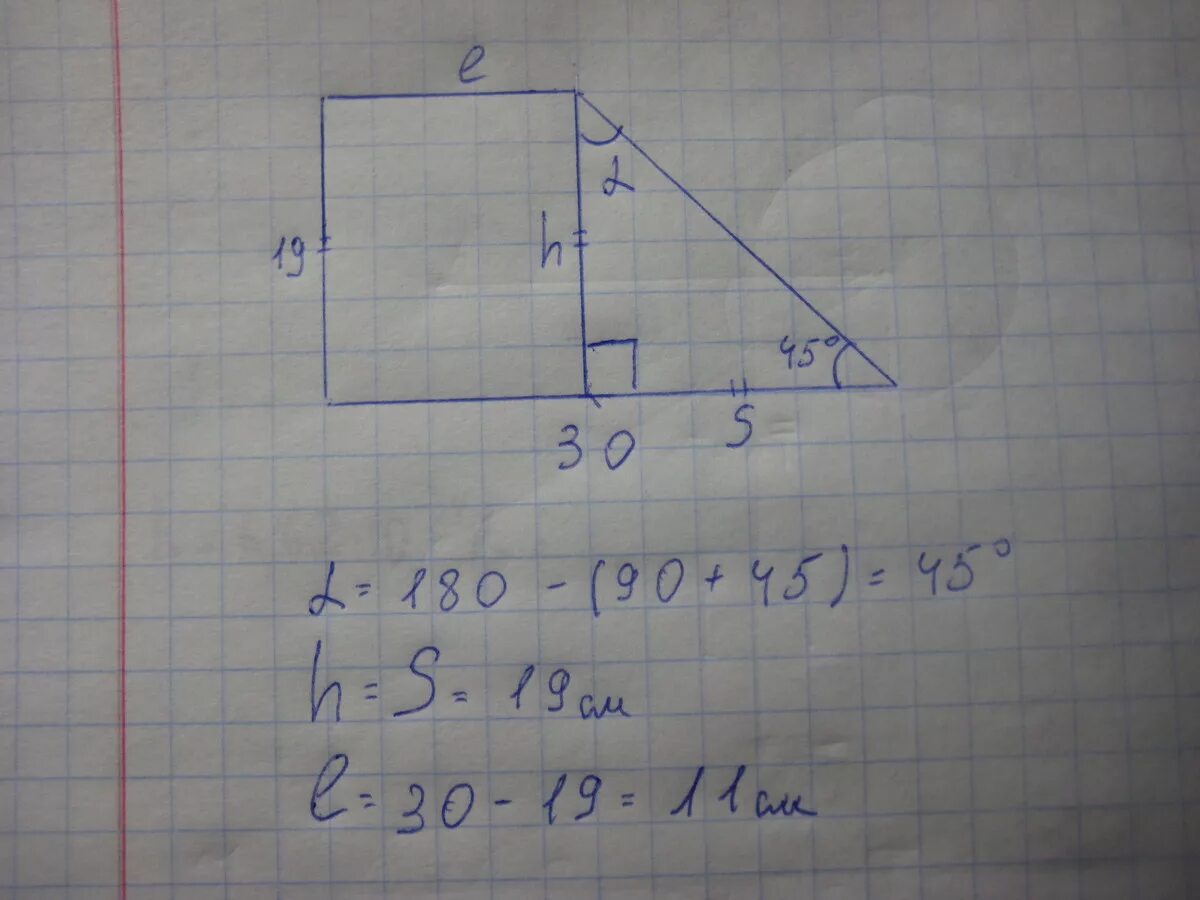 e
α
19
h
45°
30
S
α = 180 - (90 + 45) = 45°
h = S = 19 см
e = 30 - 19 = 11 см